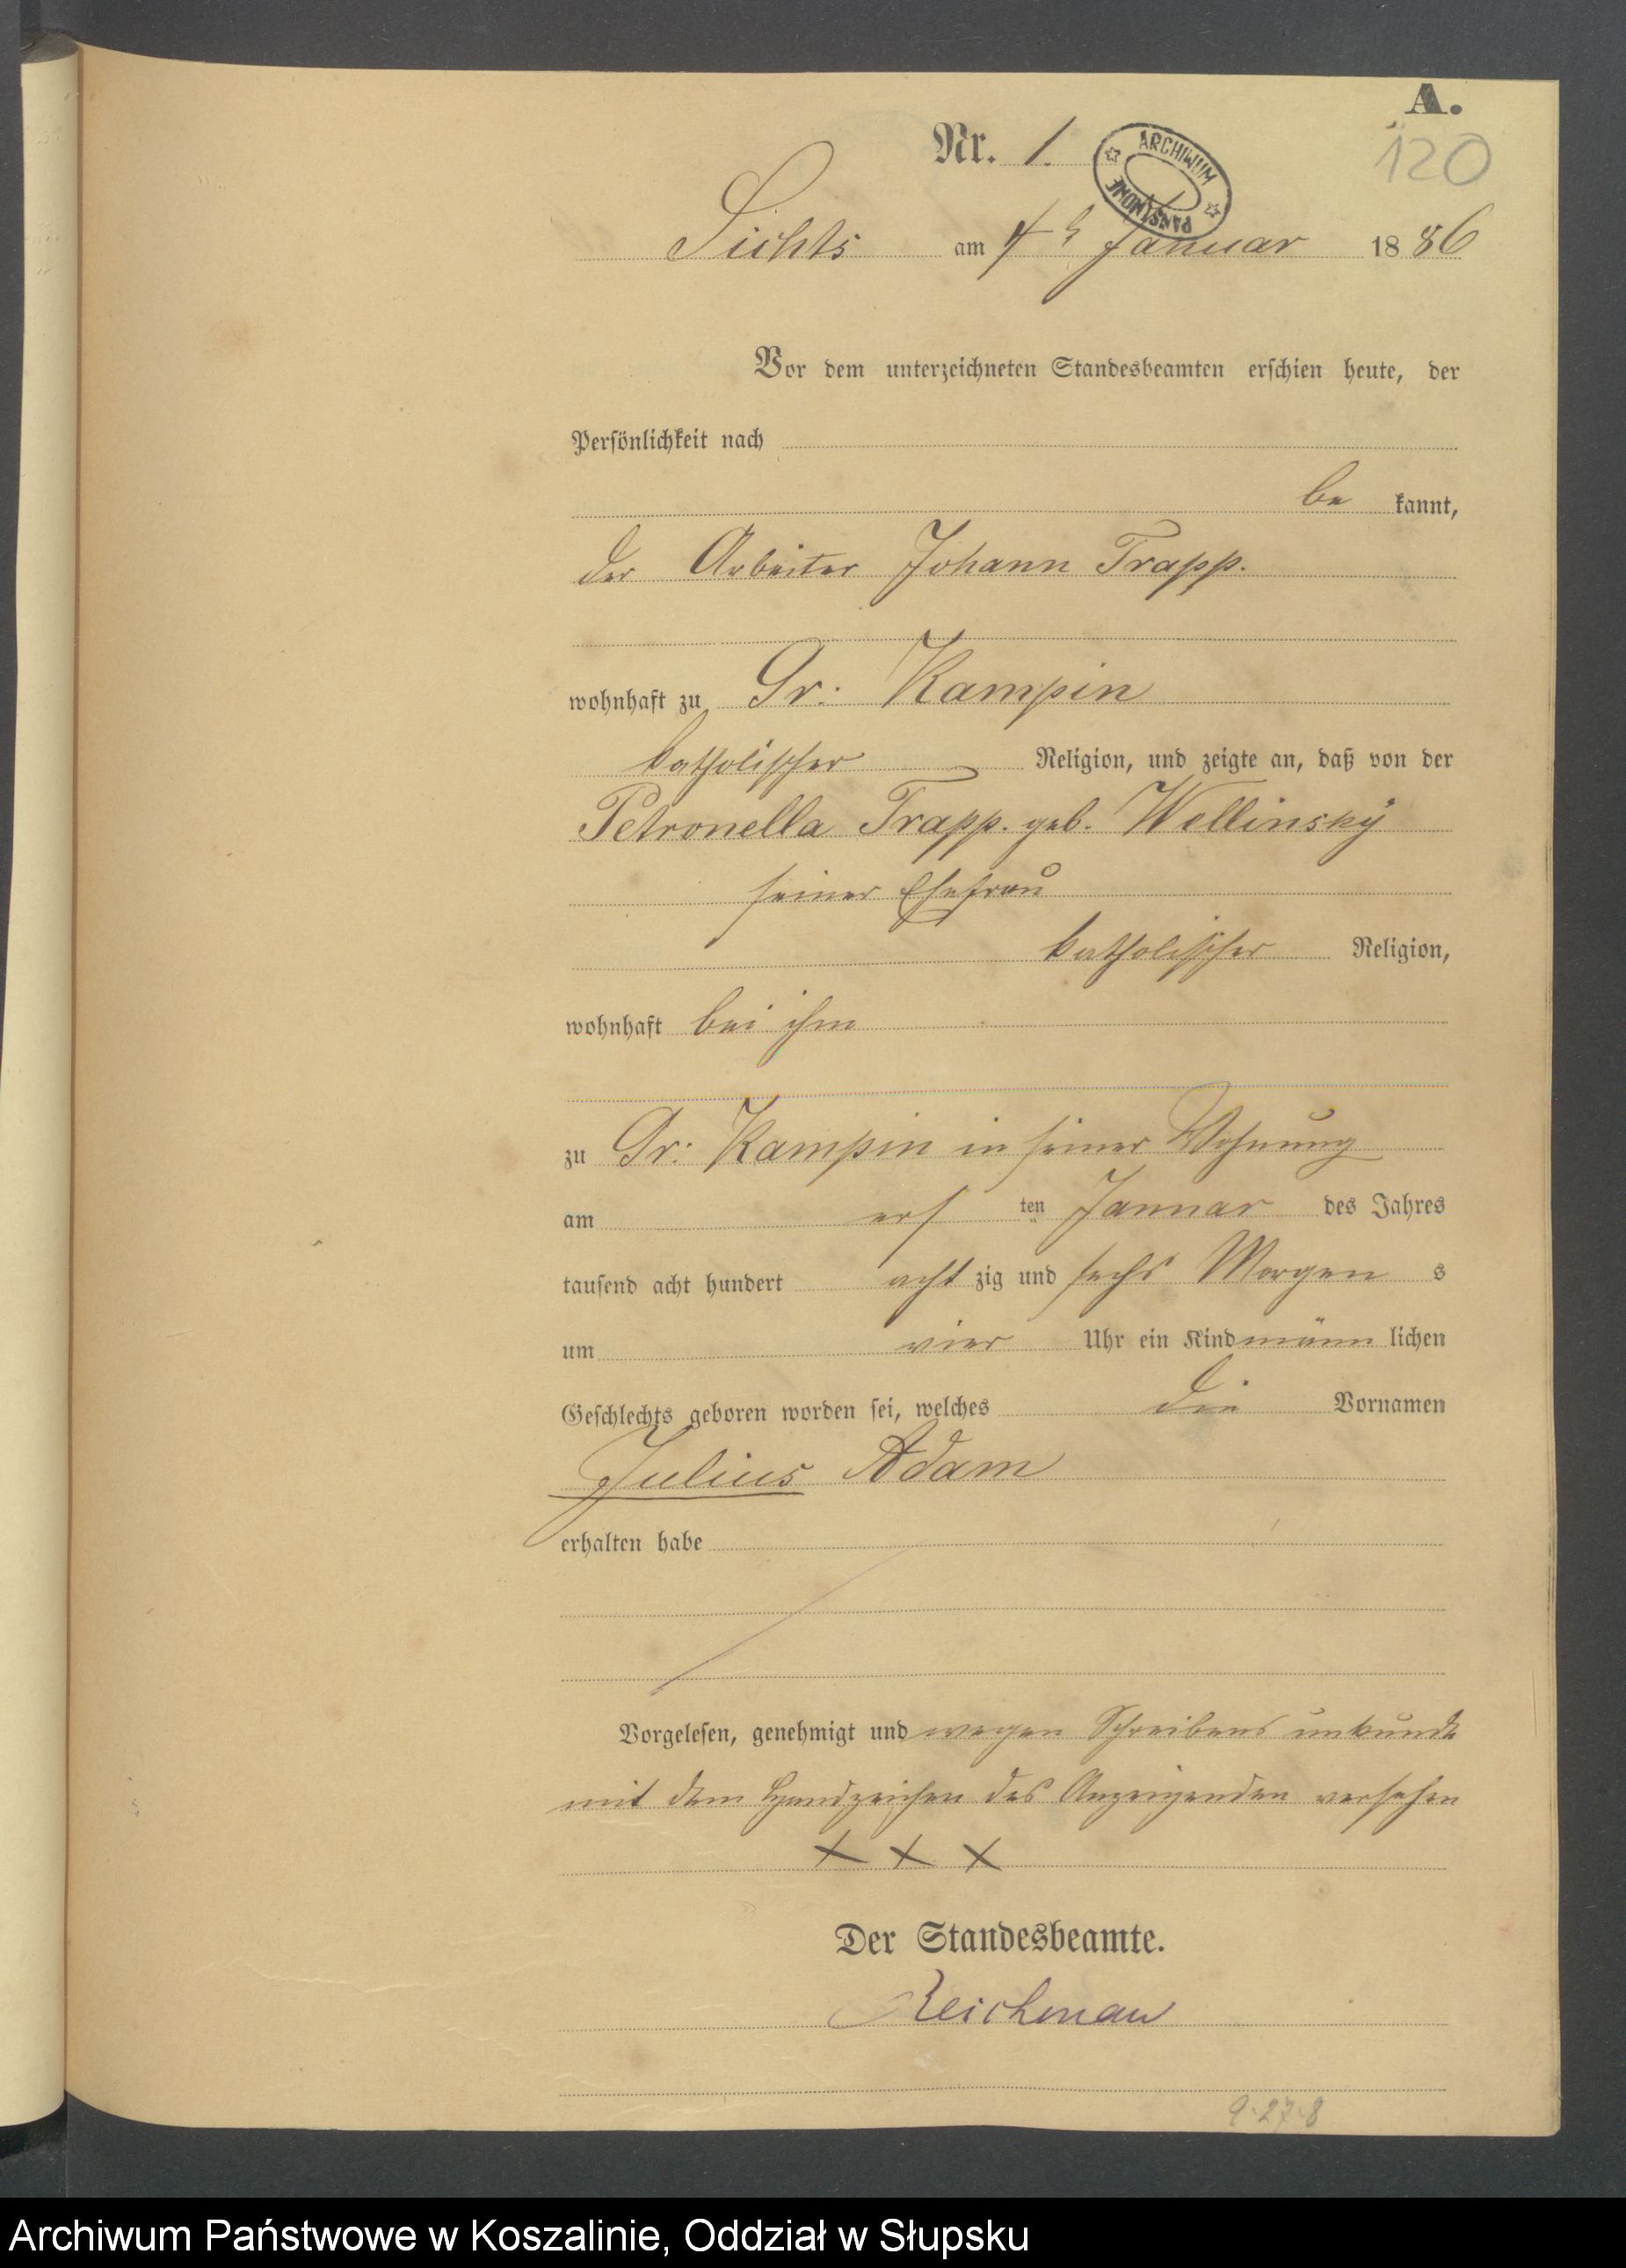 A.
Nr. 1.
120
ARCHIWUM PAŃSTWOWE
Sichts am 4 Januar 1886
Vor dem unterzeichneten Standesbeamten erschien heute, der
Persönlichkeit nach
be kannt,
der Arbeiter Johann Trapp.
wohnhaft zu Gr: Kampin
katholischer Religion, und zeigte an, daß von der
Petronella Trapp. geb. Wellinsky
seiner Ehefrau
katholischer Religion,
wohnhaft bei ihm
zu Gr: Kampin in seiner Wohnung
am ers ten Januar des Jahres
tausend acht hundert acht zig und sechs Morgen s
um vier Uhr ein Kind männ lichen
Geschlechts geboren worden sei, welches die Vornamen
Julius Adam
erhalten habe
Vorgelesen, genehmigt und wegen Schreibens unkunde
mit dem Handzeichen des Anzeigenden versehen
x x x
Der Standesbeamte.
Reichenau
9.27.8
Archiwum Państwowe w Koszalinie, Oddział w Słupsku